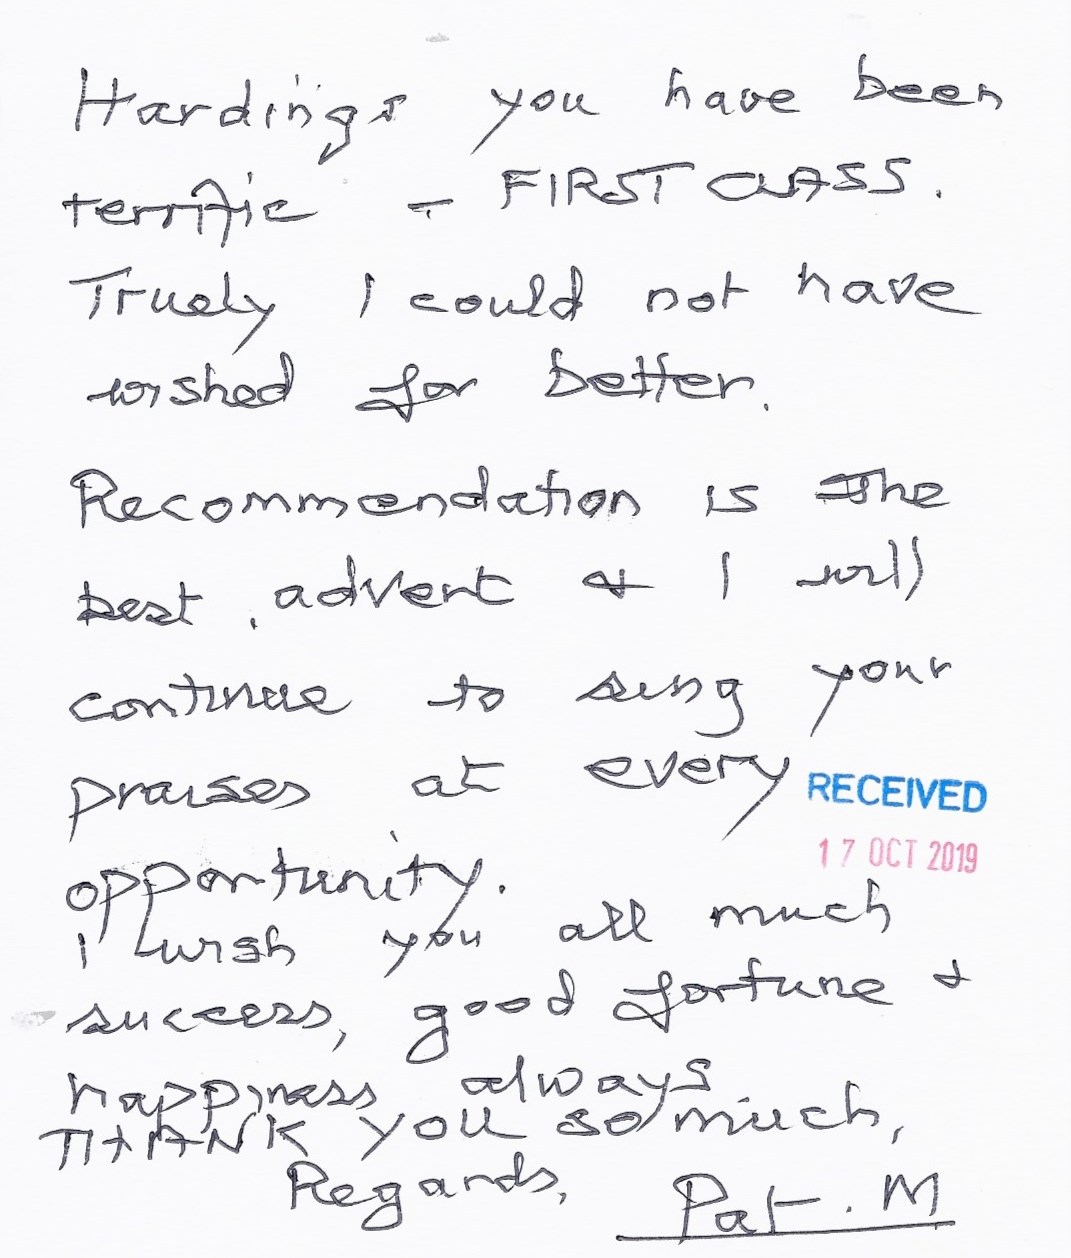 Hardings you have been
terrific - FIRST CLASS.
Truely I could not have
wished for better.
Recommendation is the
best, advert & I will
continue to sing your
praises at every
RECEIVED
17 OCT 2019
opportunity.
I wish you all much
success, good fortune &
happiness always
THANK you so much,
Regards,
Pat. M